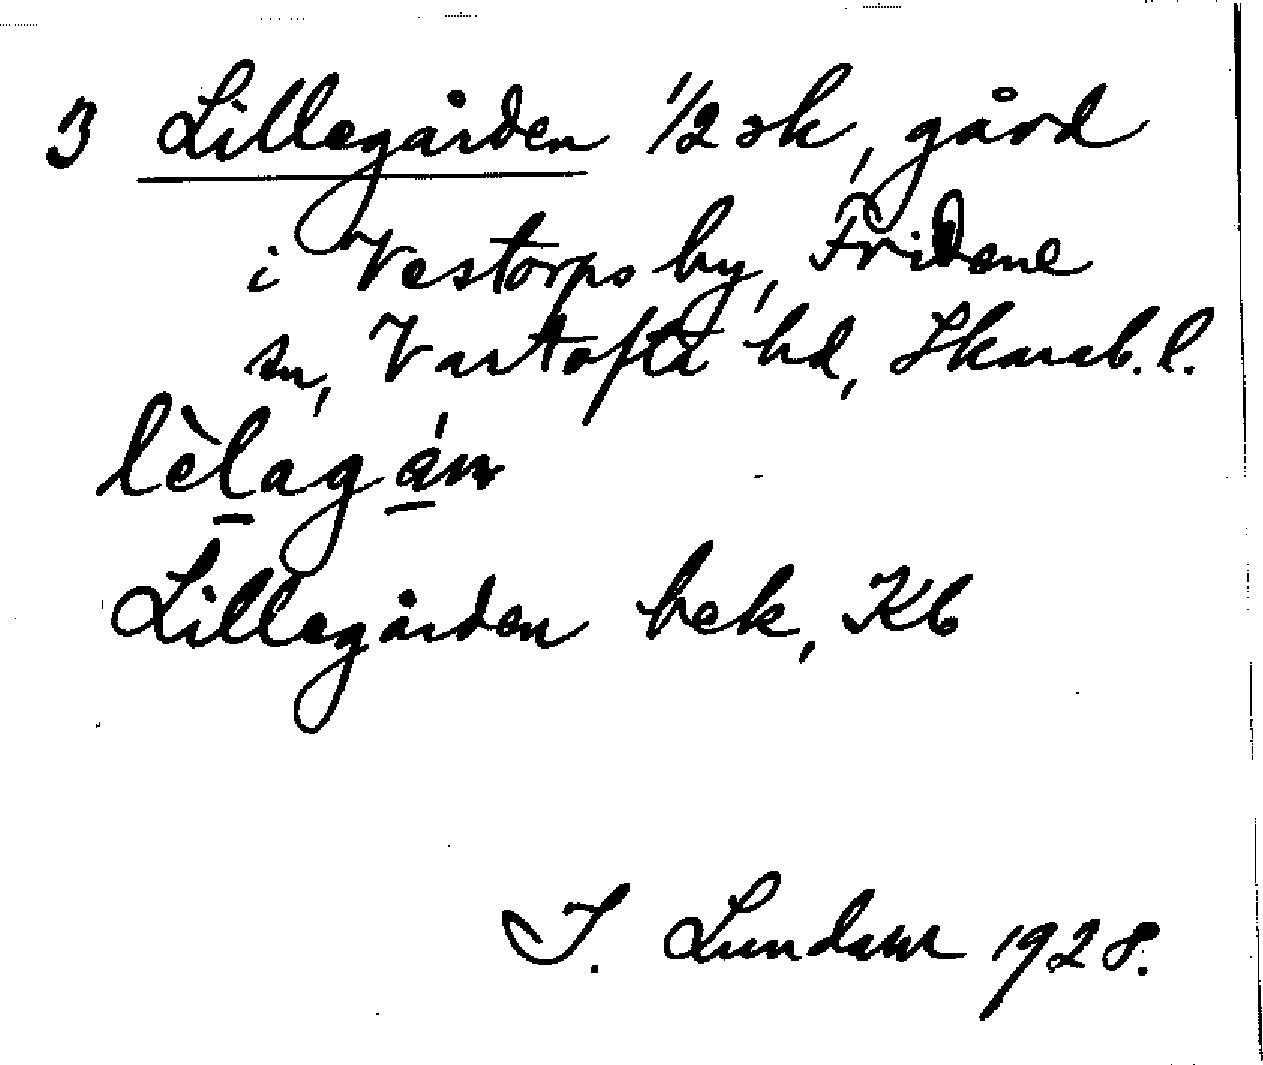 3 Lillegården 1/2 sk, gård
i Vestorps by, Fridene
sn, Vartofta hd, Skarab. l.
lèlagán
Lillegården bek, Kb
I. Lundahl 1928.